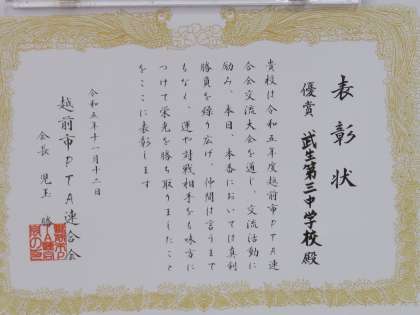 表彰状
優賞 武生第三中学校殿
貴校は令和五年度越前市PTA連
合会交流大会を通し、交流活動に
励み、本日、本番においては真剣
勝負を繰り広げ、仲間は言うまで
もなく、運や対戦相手をも味方に
つけて栄光を勝ち取りましたこと
をここに表彰します
令和五年十一月十二日
越前市PTA連合会
会長 児玉